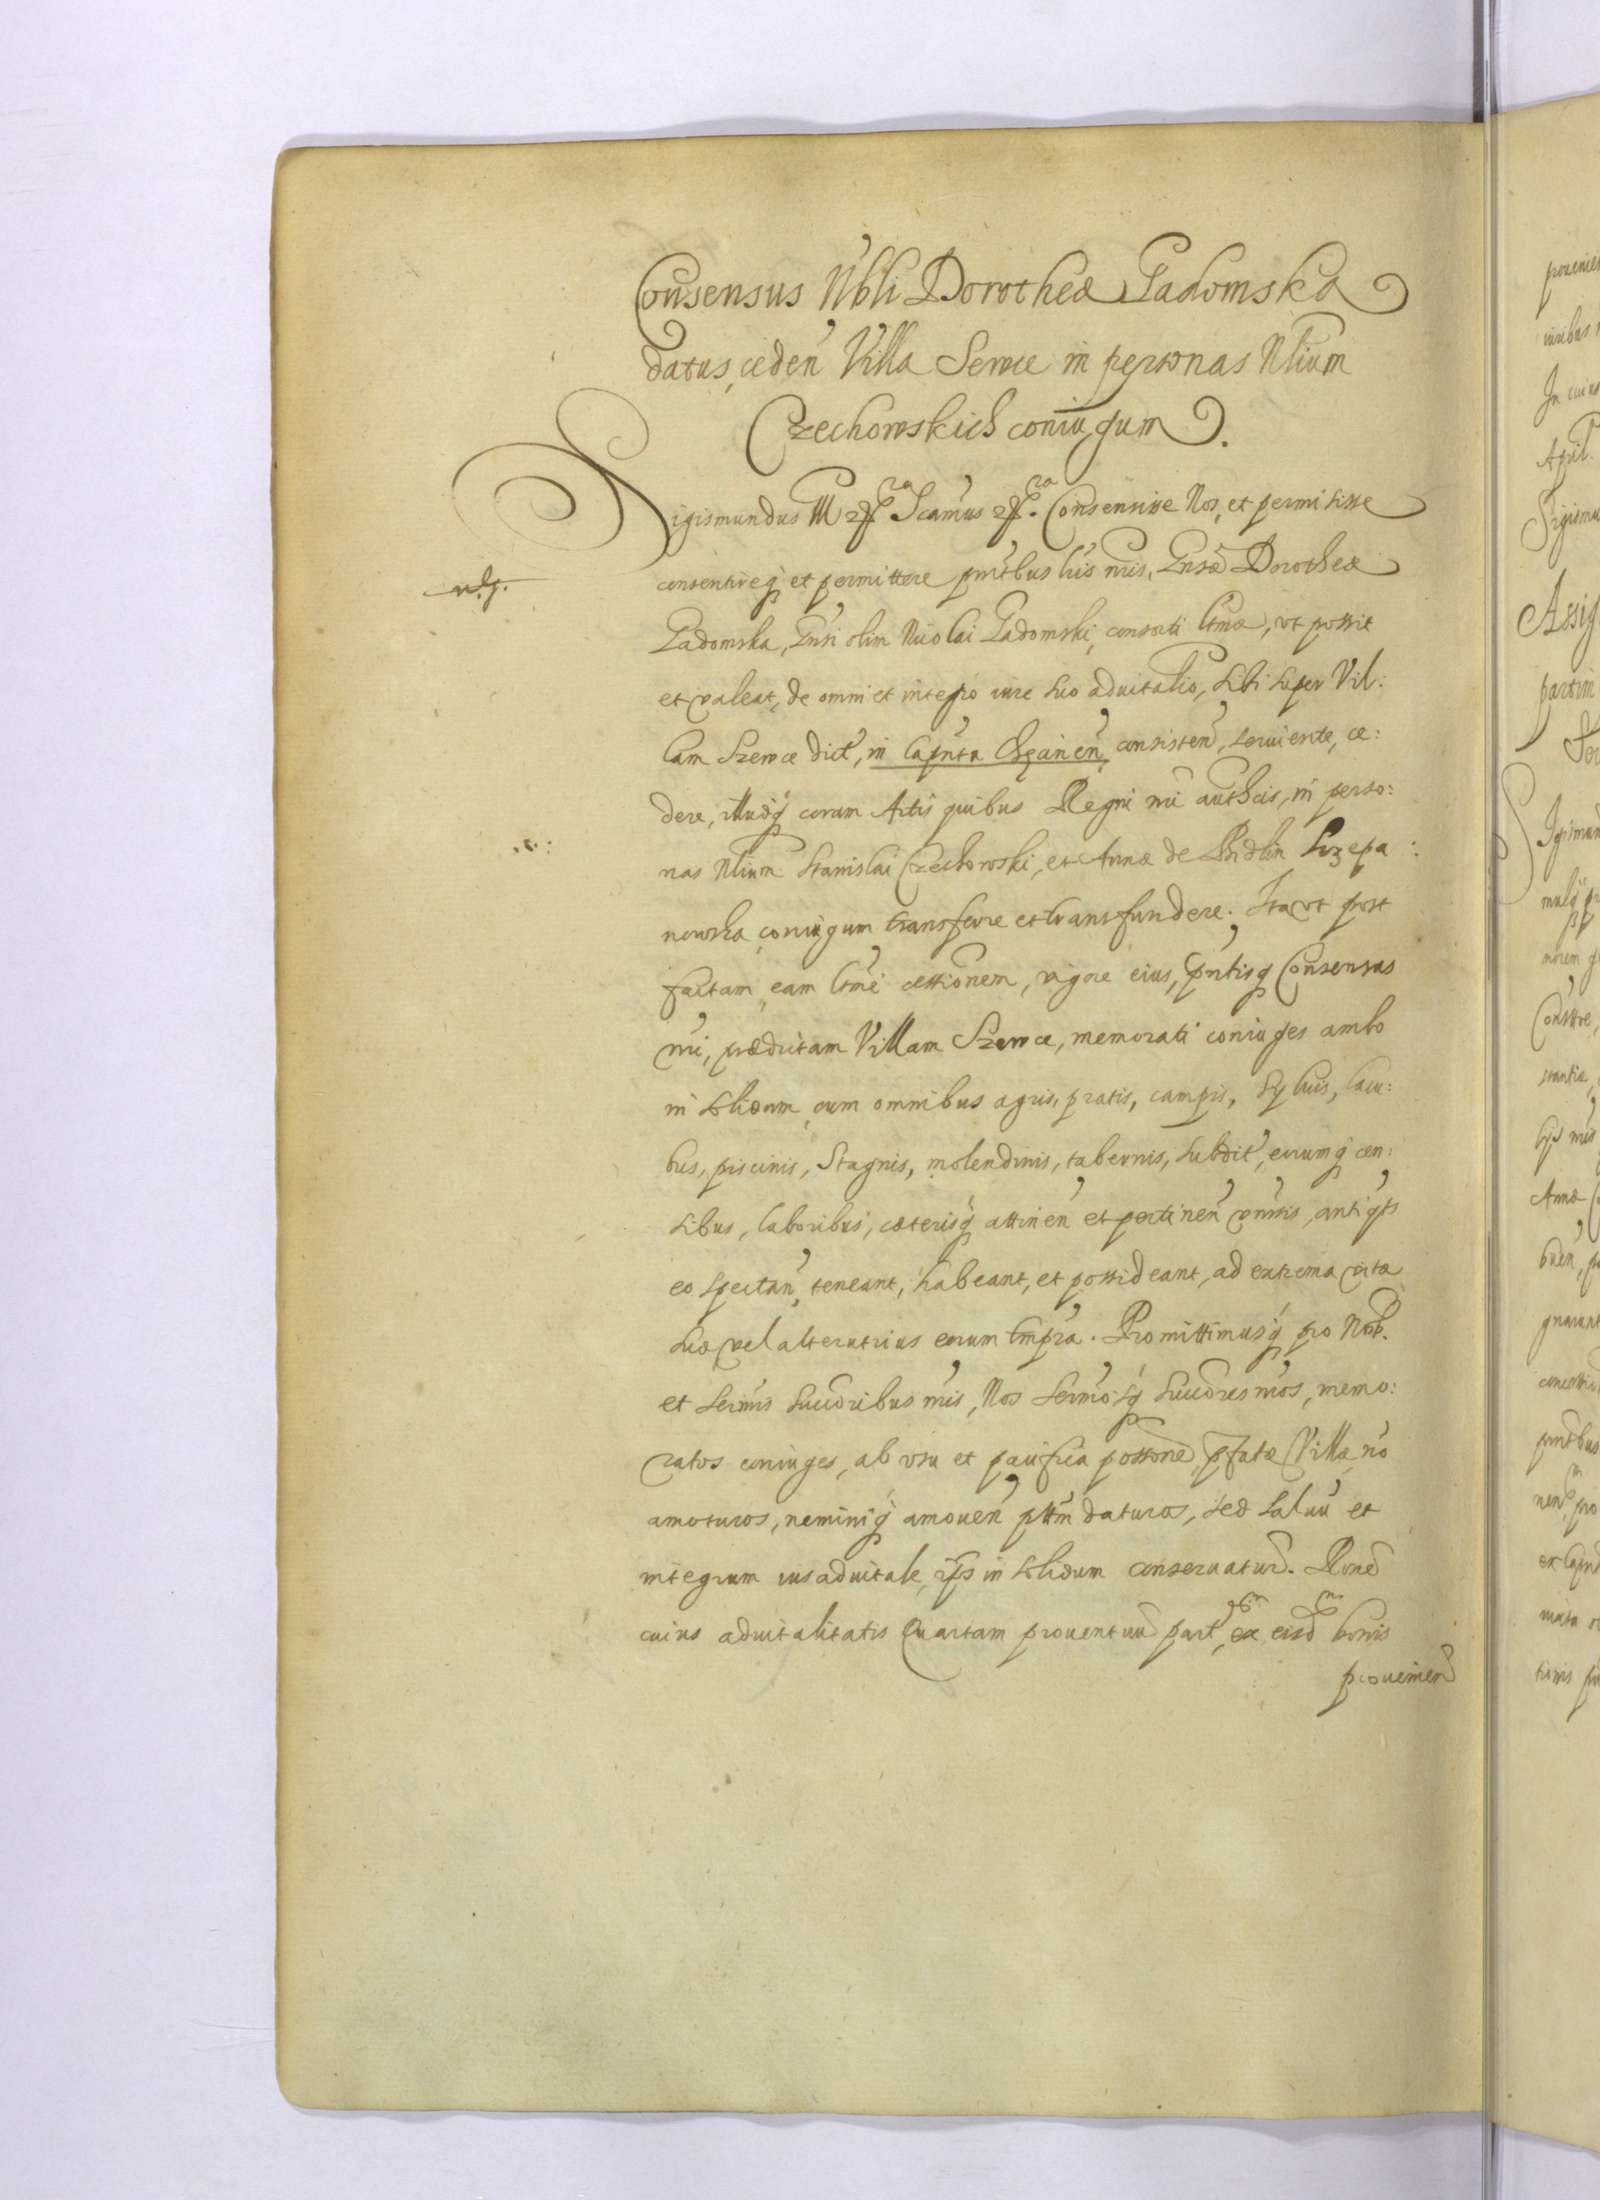 Consensus Nbli Dorotheæ Gadomska
datus, ceden Villa Sewce in personas Nlium
Czechowskich coniugum.
Sigismundus III Scamus Consensisse Nos, et permisisse
consentireq et permittere pntbus lris nris, Gnsæ Dorotheæ
Gadomska, Gnsi olim Nicolai Gadomski, consorti ltmæ, vt possit
et valeat, de omni et integro iure suo aduitalio, sibi super Vil:
lam Szewce dict, in Capnta consisten, seruiente, ce:
dere, illudq coram Actis quibus Regni nri authcis, in perso:
nas Nlium Stanislai Czechowski, et Annæ de Szczepa:
nowska coniugum transferre et transfundere. Ita vt post
factam eam ltme cessionem, vigore eius, pntisq Consensus
nri, prædictam Villam Szewce, memorati coniuges ambo
in solidum cum omnibus agris, pratis, campis, syluis, lacu:
bus, piscinis, Stagnis, molendinis, tabernis, subdit, eorumq cen:
sibus, laboribus, cæterisq attinen et pertinen vnitis, antiqts
eo spectan, teneant, habeant, et possideant, ad extrema vitæ
suæ vel alterutrius eorum tmpra. Promittimusq pro Nob.
et sermis succoribus nris, Nos sermosq succores nros, memo:
ratos coniuges, ab vsu et pacifica possone pfatæ Villæ no
amoturos, neminiq amouen pttm daturos, sed saluu et
integrum ius aduitale, ips in solidum conseruatur. Rone
cuius aduitalitatis Quartam prouentuu part, ex eisd bonis
prouenien